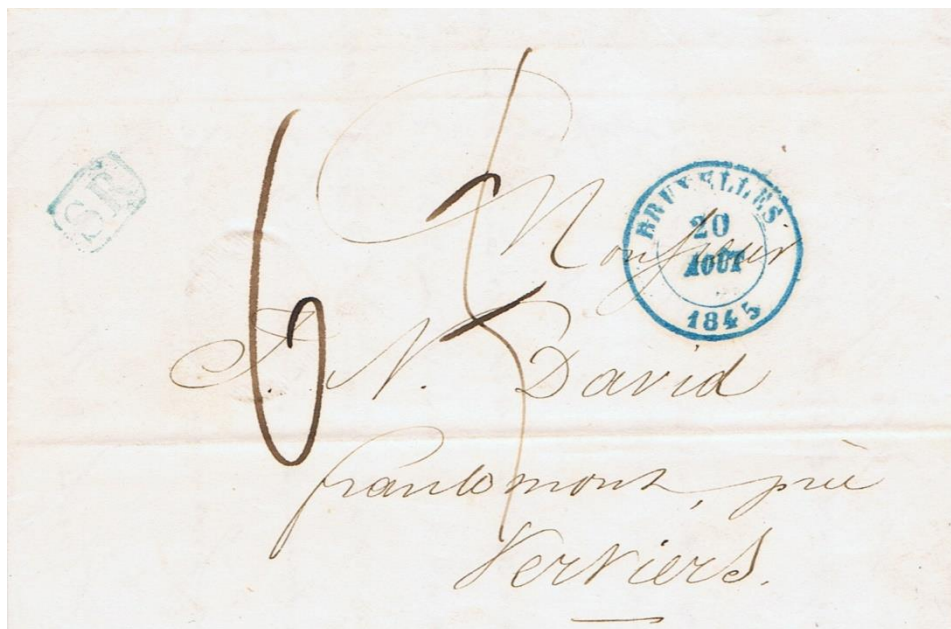 SR
6
BRUXELLES
20
AOUT
1845
Monsieur
J. N. David
francomont, près
Verviers.